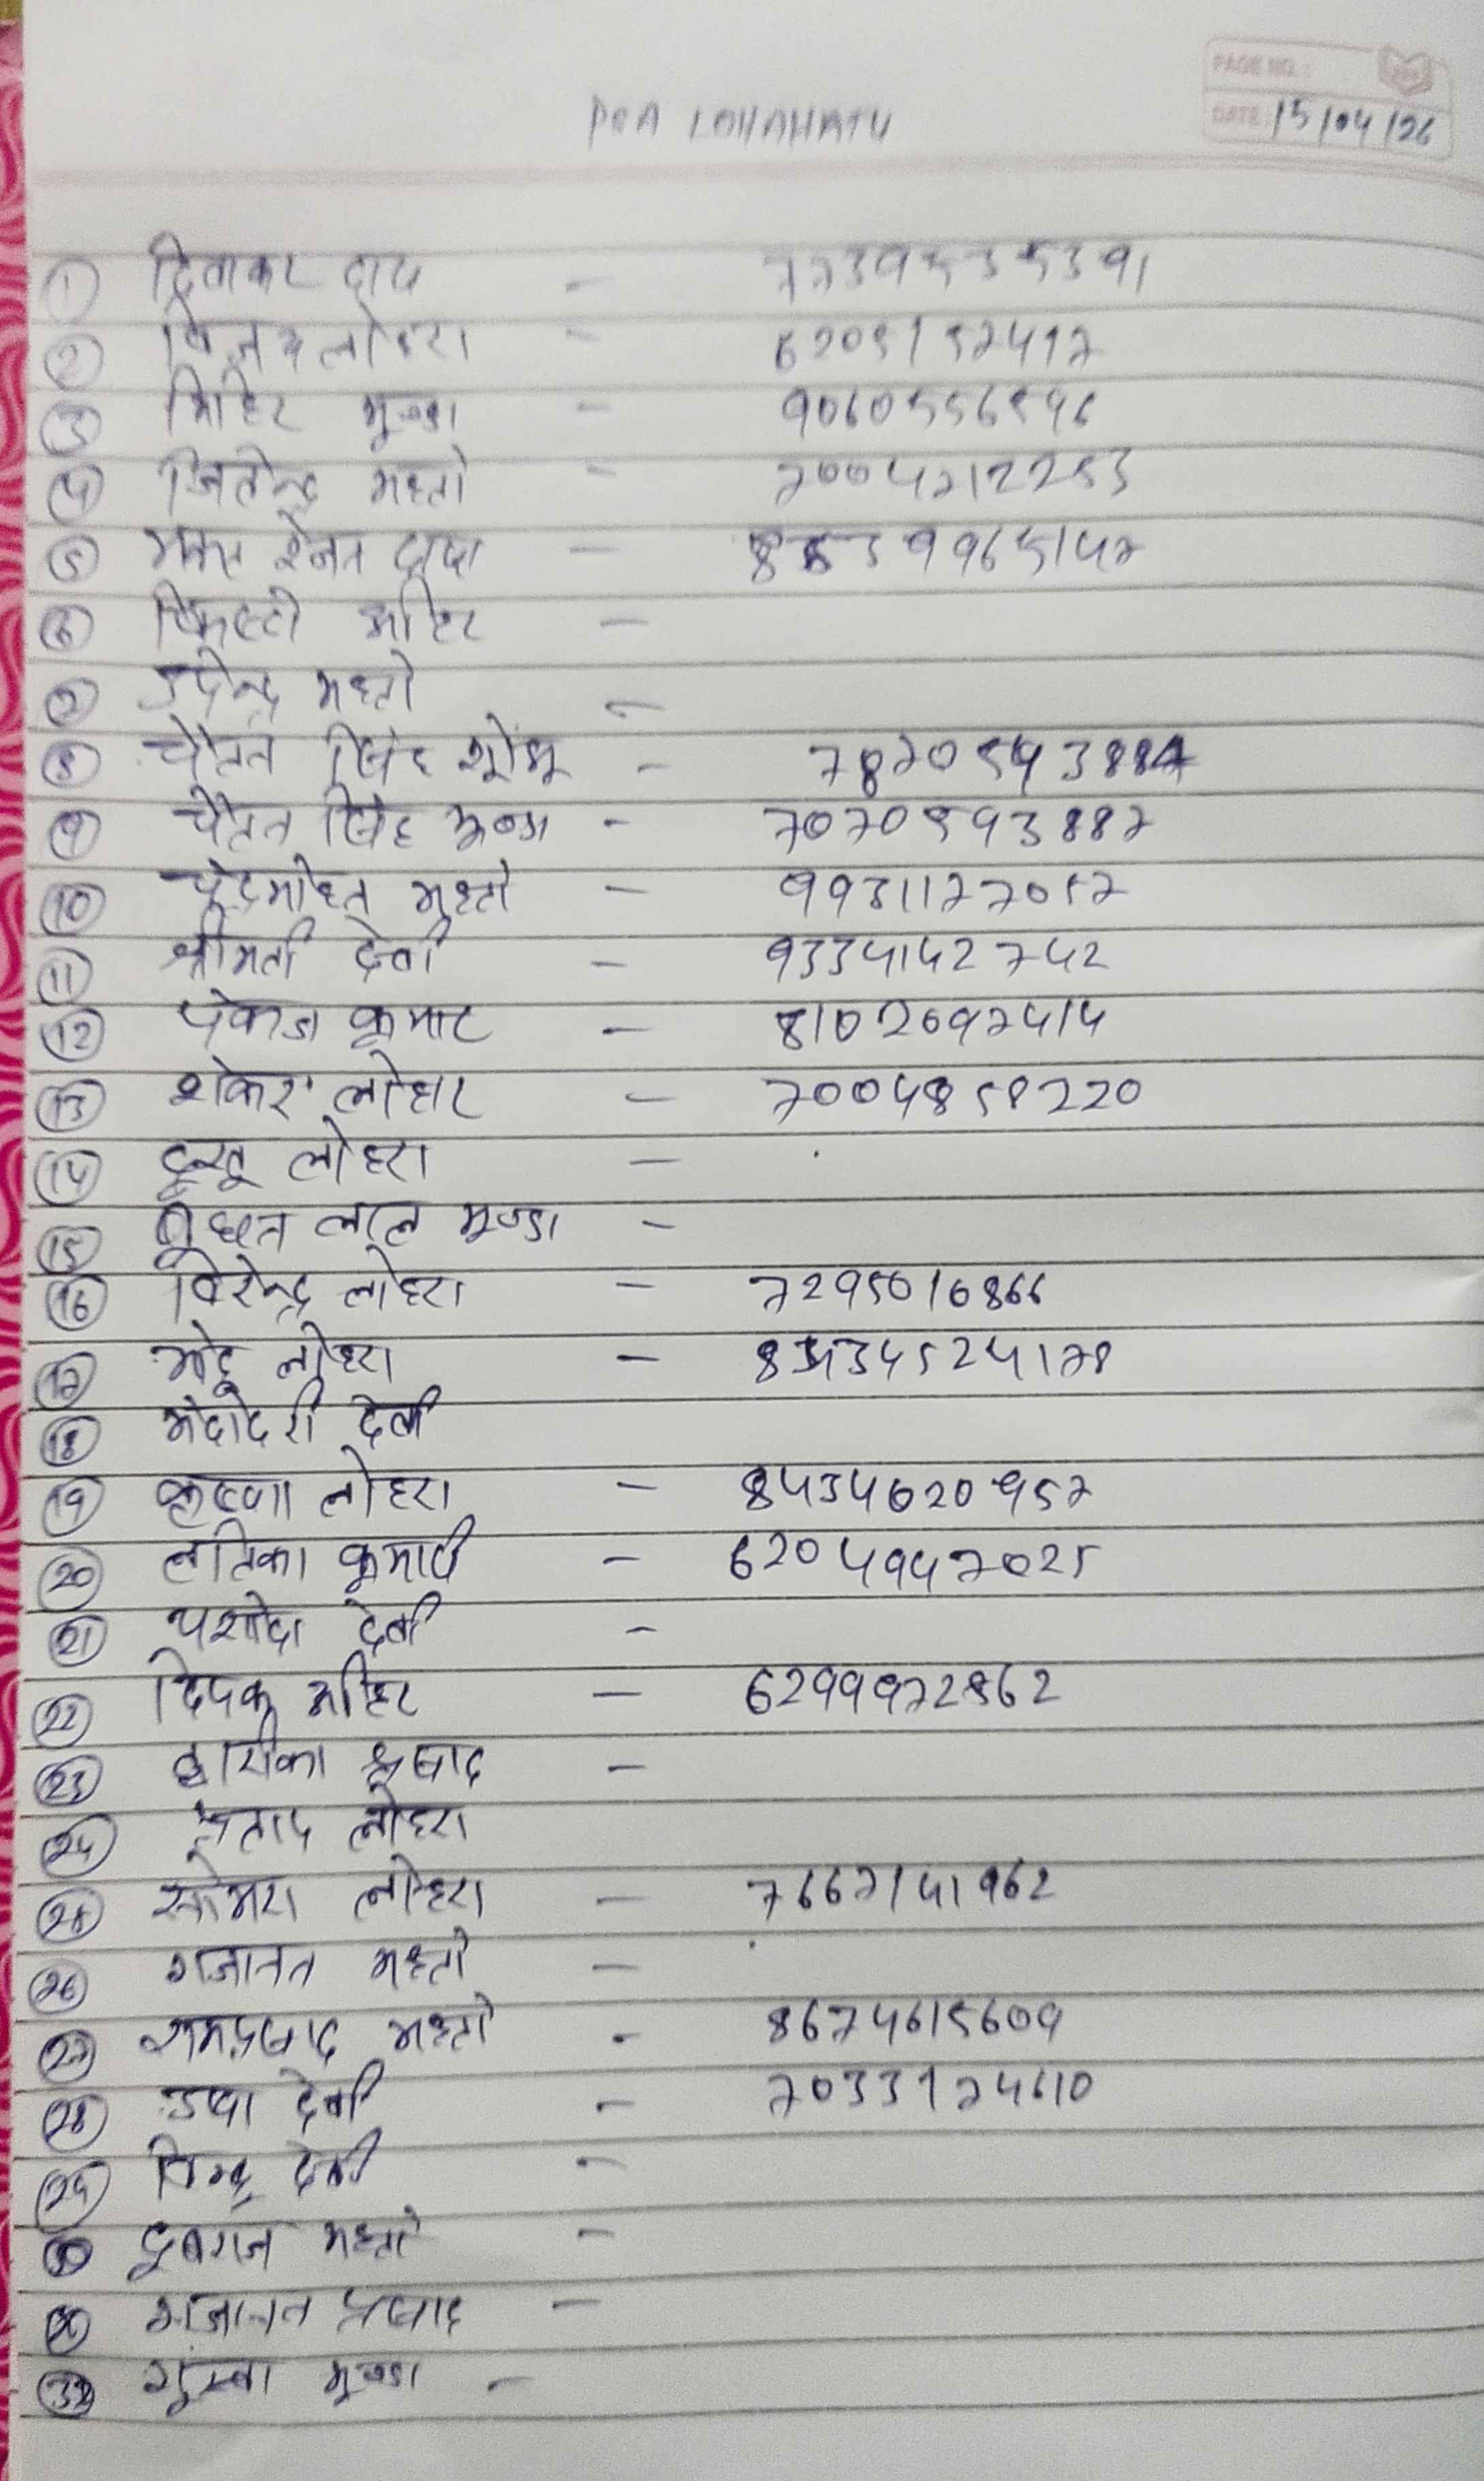 PAGE NO.:
DATE: 15/04/26
POA LOHAHATU
1 दिवाकर दास - 7739535391
2 विजय लोहरा - 6205152417
3 मिहिर मुण्डा - 9060556596
4 जितेन्द्र महतो - 7004212253
5 - 9965147
6 महिर -
7 उपेन्द्र महतो -
8 चैतन सिंह - 7870593884
9 चैतन सिंह मुण्डा - 7070593887
10 चंद्रमोहन महतो - 9931127057
11 श्रीमती देवी - 9334142742
12 पंकज कुमार - 8102697414
13 शंकर लोहार - 7004858220
14 दुखु लोहरा -
15 बुधन लाल मुण्डा -
16 विरेन्द्र लोहरा - 7295016866
17 लोहरा -
18 मंदोदरी देवी
19 कृष्णा लोहरा - 8434620957
20 लतिका कुमारी - 6204947025
21 यशोदा देवी -
22 दिपक महिर - 6299972862
23 द्वारिका प्रसाद -
24 प्रताप लोहरा
25 सोमरा लोहरा - 7667141962
26 गजानन महतो -
27 रामप्रसाद महतो - 8674615609
28 उषा देवी - 7033174610
29 देवी -
महतो -
गजानन प्रसाद -
32 मुण्डा -